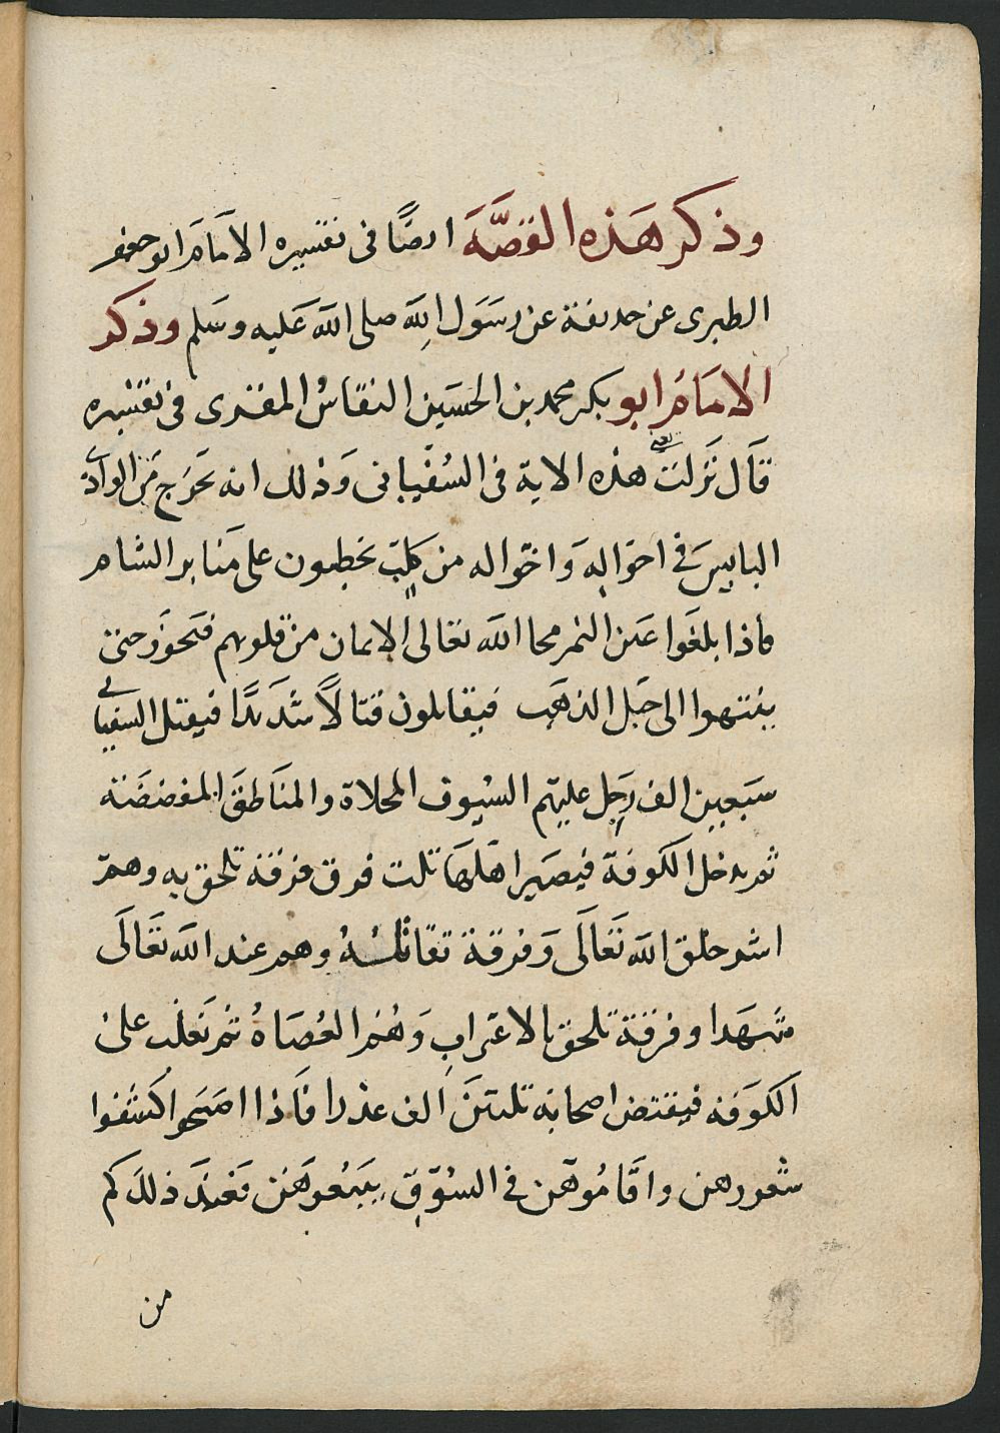 وذكر هذه القصة ايضا في تفسيره الامام ابو جعفر
الطبرى عن حذيفة عن رسول الله صلى الله عليه وسلم وذكر
الامام ابو بكر محمد بن الحسين النقاش المقرى في تفسيره
قال نزلت هذه الاية في السفياني وذلك انه يخرج من الوادى
اليابس في اخواله واخواله من كلب يخطبون على منابر الشام
فاذا بلغوا عين التمر محا الله تعالى الايمان من قلوبهم فتجوز حتى
ينتهوا الى جبل الذهب فيقاتلون قتالا شديدا فيقتل السفياني
سبعين الف رجل عليهم السيوف المحلاة والمناطق المفضضة
ثم يدخل الكوفة فيصير اهلها ثلث فرق فرقة تلحق به وهم
اشر خلق الله تعالى وفرقة تقاتله وهم عند الله تعالى
شهدا وفرقة تلحق بالاعراب وهم العصاة ثم تغلب على
الكوفه فيفتض اصحابه ثلثين الف عذرا فاذا اصبحوا كشفوا
شعورهن واقاموهن في السوق يبيعوهن فعند ذلك كم
من